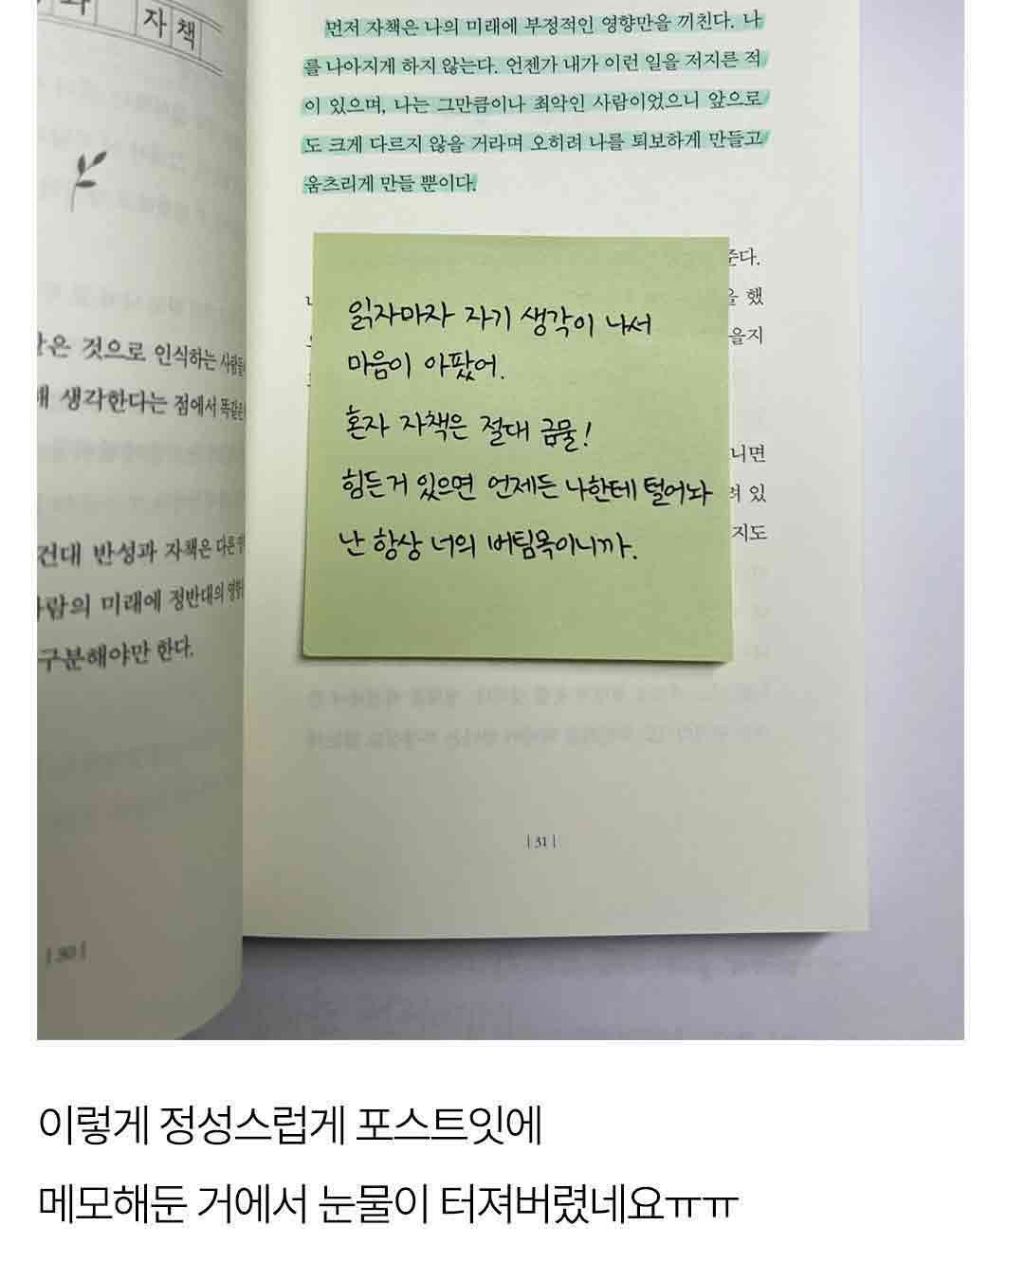 자책
먼저 자책은 나의 미래에 부정적인 영향만을 끼친다. 나
를 나아지게 하지 않는다. 언젠가 내가 이런 일을 저지른 적
이 있으며, 나는 그만큼이나 최악인 사람이었으니 앞으로
도 크게 다르지 않을 거라며 오히려 나를 퇴보하게 만들고
움츠리게 만들 뿐이다.
준다.
을 했
을지
니면
려 있
지도
읽자마자 자기 생각이 나서
마음이 아팠어.
혼자 자책은 절대 금물!
힘든거 있으면 언제든 나한테 털어놔
난 항상 너의 버팀목이니까.
같은 것으로 인식하는 사람들
해 생각한다는 점에서 똑같은
건대 반성과 자책은 다른
사람의 미래에 정반대의 영향
구분해야만 한다.
| 31 |
| 30 |
이렇게 정성스럽게 포스트잇에
메모해둔 거에서 눈물이 터져버렸네요ㅠㅠ